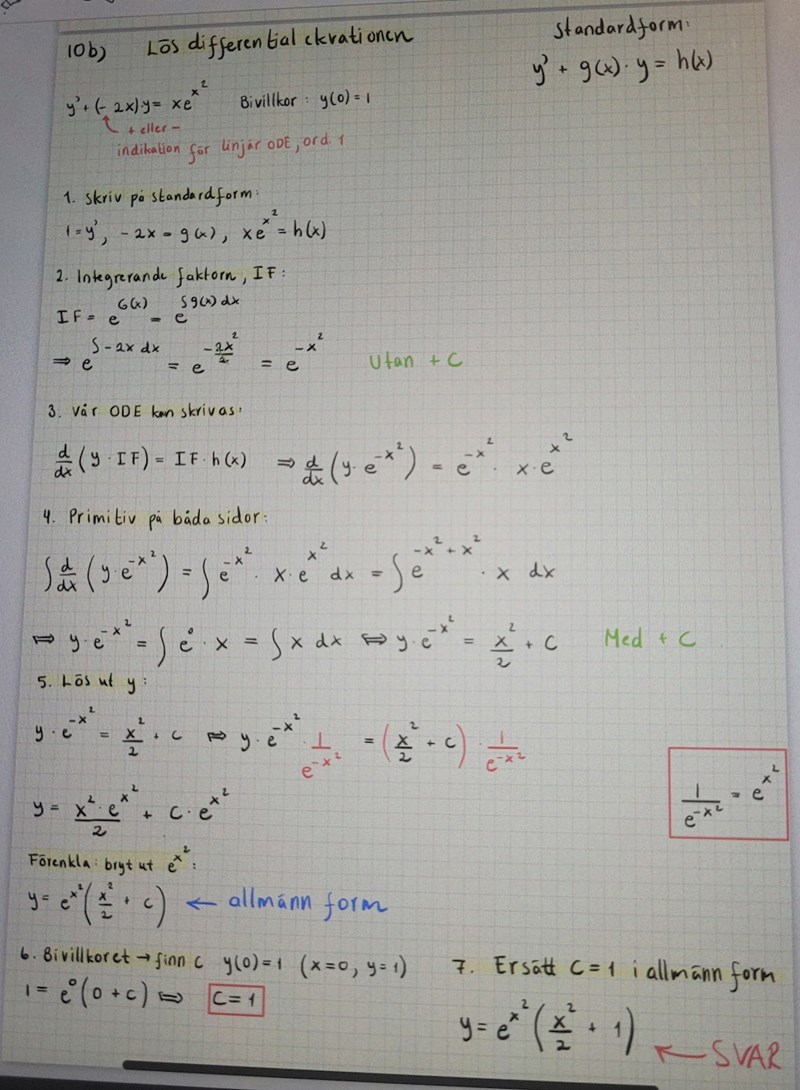 10b) Lös differential ekvationen
Standardform:
y' + g(x) · y = h(x)
y' + (- 2x)·y = xe^{x^2} Bivillkor : y(0) = 1
+ eller -
indikation för linjär ODE, ord. 1
1. Skriv på standardform:
1 = y', - 2x = g(x), xe^{x^2} = h(x)
2. Integrerande faktorn, IF:
IF = e^{G(x)} = e^{∫g(x) dx}
⇒ e^{∫-2x dx} = e^{-\frac{2x^2}{2}} = e^{-x^2} Utan + C
3. Vår ODE kan skrivas:
\frac{d}{dx} (y · IF) = IF · h(x) ⇒ \frac{d}{dx} (y · e^{-x^2}) = e^{-x^2} · x · e^{x^2}
4. Primitiv på båda sidor:
∫ \frac{d}{dx} (y·e^{-x^2}) = ∫ e^{-x^2} · x · e^{x^2} dx = ∫ e^{-x^2 + x^2} · x dx
⇔ y · e^{-x^2} = ∫ e^0 · x = ∫ x dx ⇔ y · e^{-x^2} = \frac{x^2}{2} + C Med + C
5. Lös ut y:
y · e^{-x^2} = \frac{x^2}{2} + C ⇔ y · e^{-x^2} · \frac{1}{e^{-x^2}} = (\frac{x^2}{2} + C) · \frac{1}{e^{-x^2}}
\frac{1}{e^{-x^2}} = e^{x^2}
y = \frac{x^2 · e^{x^2}}{2} + C · e^{x^2}
Förenkla: bryt ut e^{x^2}:
y = e^{x^2} (\frac{x^2}{2} + C) ← allmänn form
6. Bivillkoret → finn C y(0) = 1 (x=0, y=1)
1 = e^0 (0 + C) ⇔ C = 1
7. Ersätt C = 1 i allmänn form
y = e^{x^2} (\frac{x^2}{2} + 1)
← SVAR